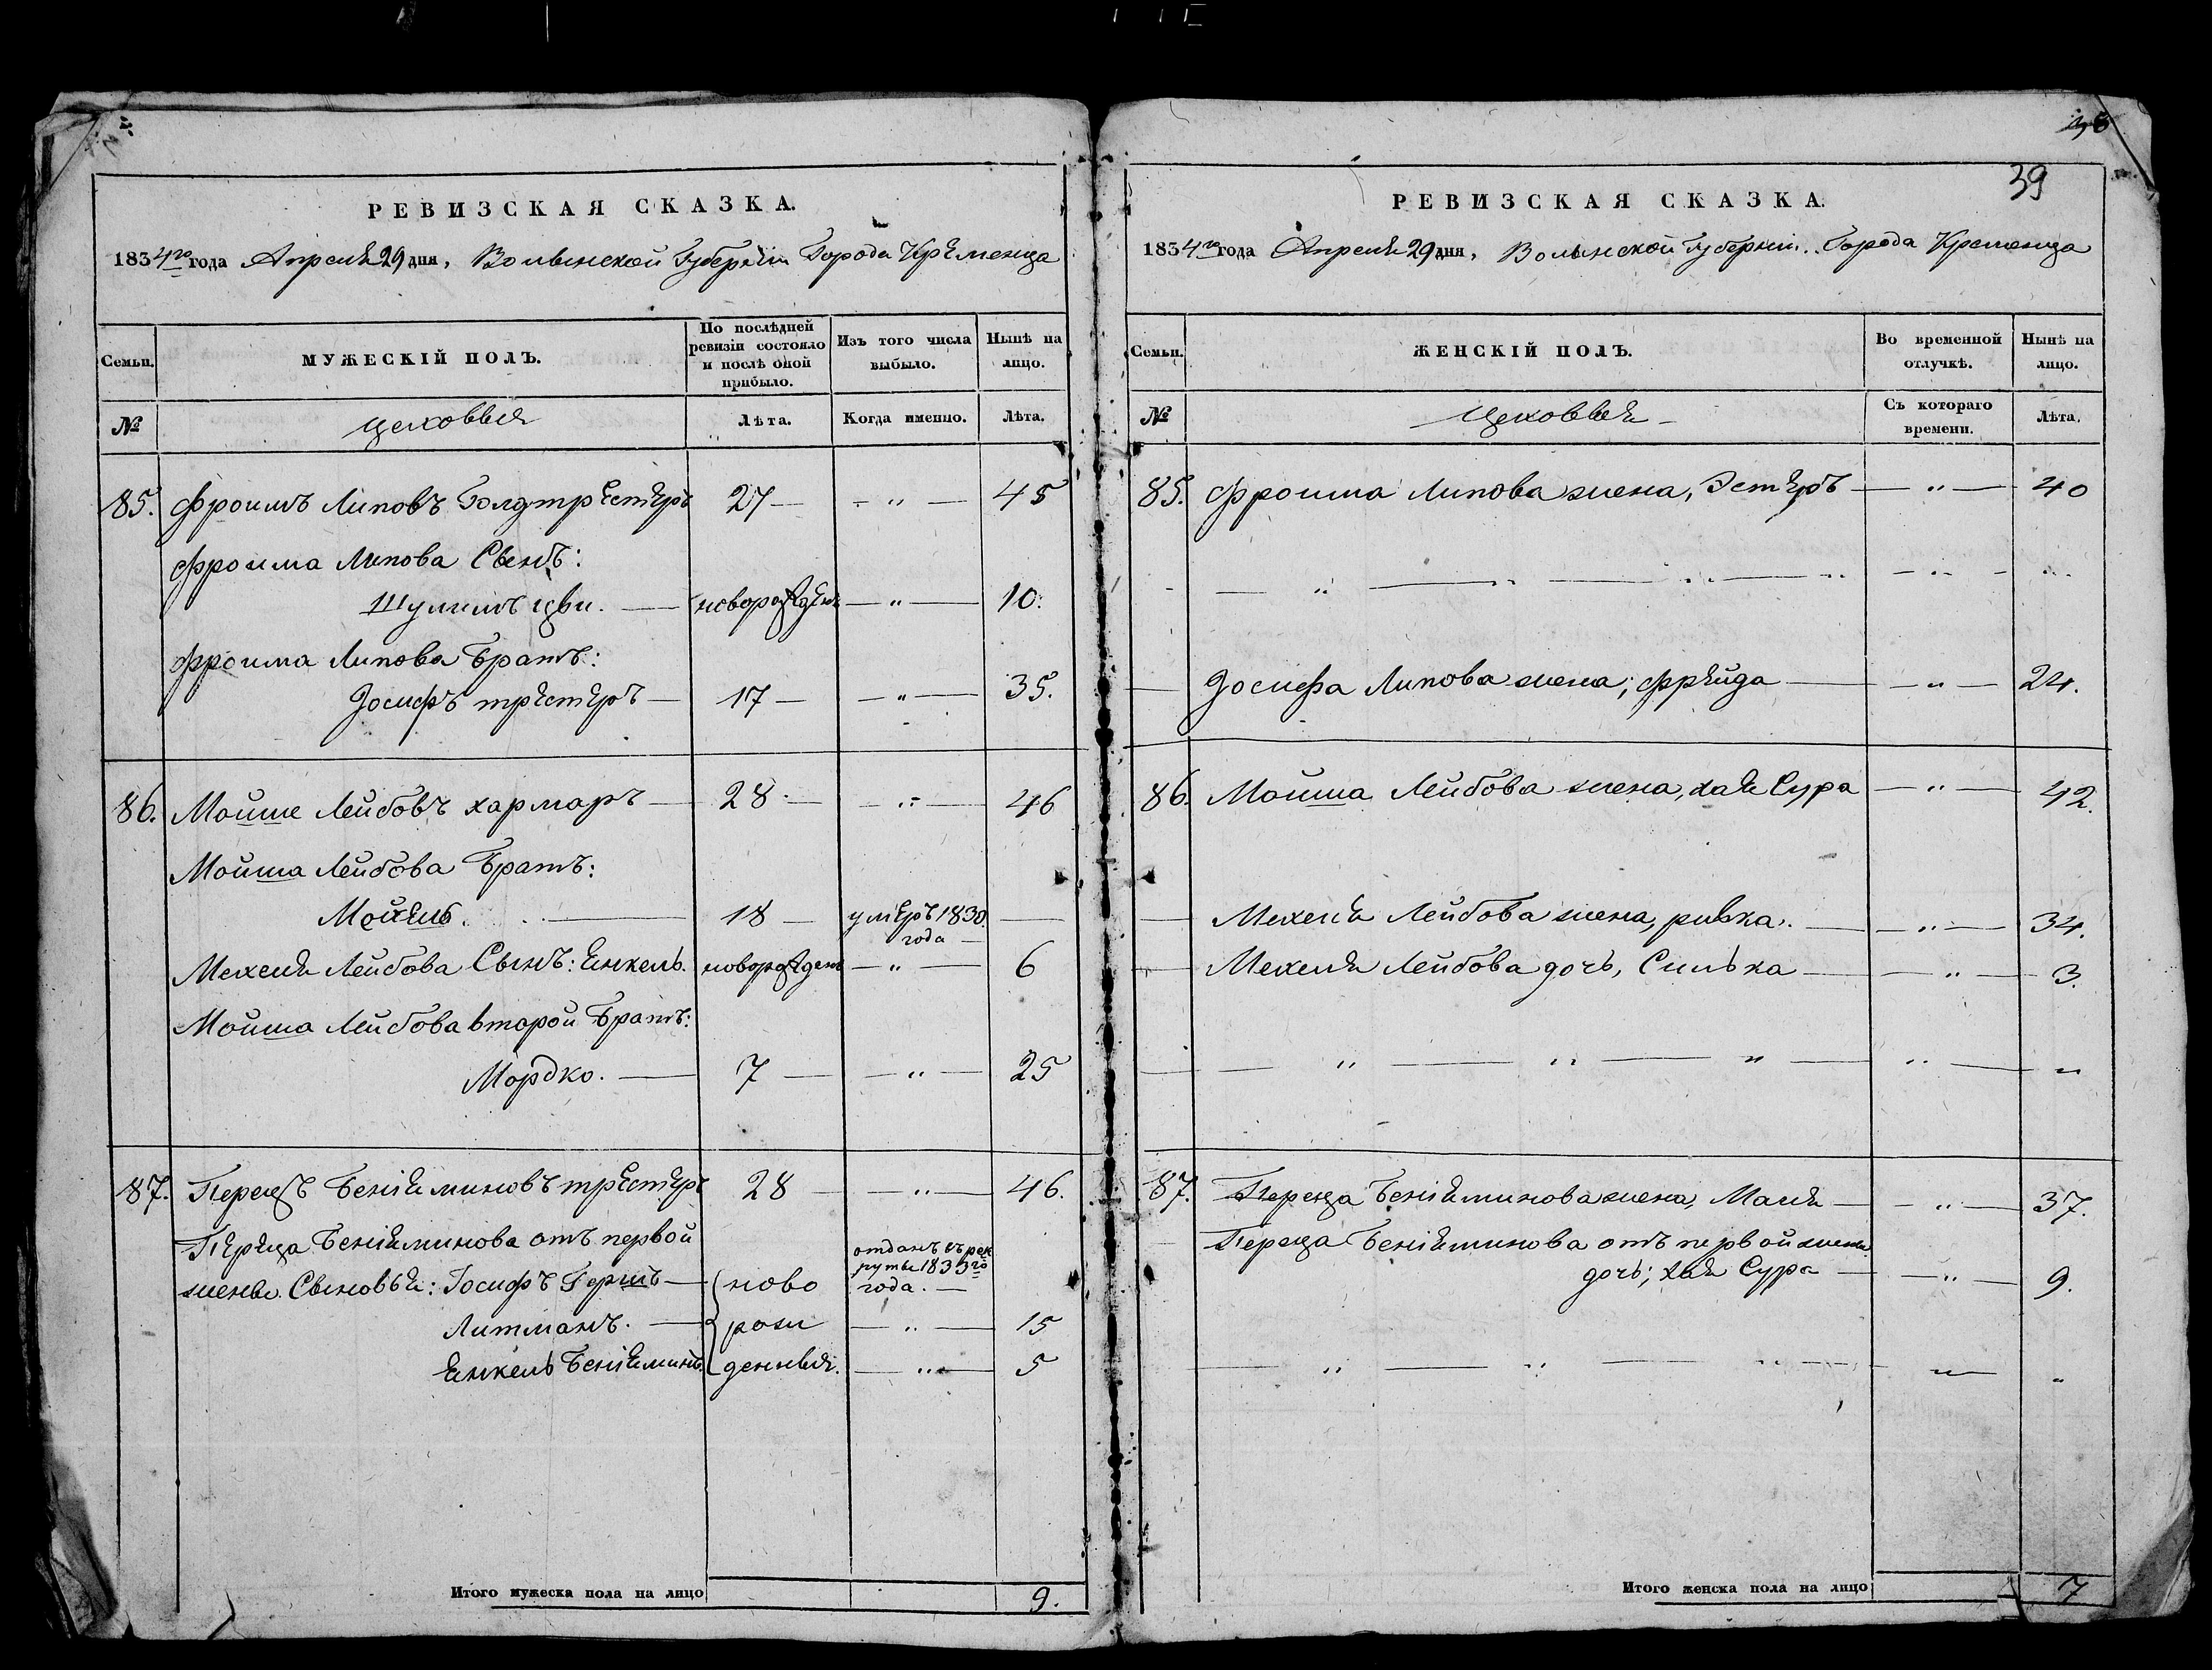 39
РЕВИЗСКАЯ СКАЗКА.
1834го года Апреля 29 дня, Волынской Губернiи Города Кременца
Семьи.
МУЖЕСКIЙ ПОЛЪ.
По послѣдней ревизiи состояло и послѣ оной прибыло.
Изъ того числа выбыло.
Нынѣ на лицо.
№
цеховыя
Лѣта.
Когда именно.
Лѣта.
85. Фроимъ Липовъ Голдтрестеръ 27 — — " — 45
Фроима Липова Сынъ:
Шулимъ цви. — новорожден — " — 10.
Фроима Липова Братъ:
Iосифъ трестеръ — 17 — — " — 35.
86. Мойше Лейбовъ хармаръ — 28 — — " — 46
Мойша Лейбова Братъ:
Мехель. — 18 — умеръ 1830. —
года —
Мехеля Лейбова Сынъ: Янкель. новорожден — " — 6
Мойша Лейбова второй Братъ:
Мордко. — 7 — — " — 25
87. Перецъ Бенiяминовъ трестеръ 28 — — " — 46.
Переца Бенiяминова отъ первой
жены Сыновья: Iосифъ Гершъ — ново отданъ въ рек
руты 1833го
года. —
Литманъ. — рож — " — 15
Янкель Бенiяминъ. денныя. — " — 5
Итого мужеска пола на лицо 9.
РЕВИЗСКАЯ СКАЗКА.
1834го года Апреля 29 дня, Волынской Губернiи. Города Кременца
Семьи.
ЖЕНСКIЙ ПОЛЪ.
Во временной отлучкѣ.
Нынѣ на лицо.
№
Цеховыя
Съ котораго времени.
Лѣта.
85. Фроима Липова жена, Эстеръ — — " — 40
— " — " — " — " — " — "
— Iосифа Липова жена; Фрейда — — " — 24.
86. Мойша Лейбова жена, хая Сура — " — 42.
— Мехеля Лейбова жена, ривка. — — " — 34.
— Мехеля Лейбова дочь, Силька — — " — 3.
— " — " — " — " — "
87. Переца Бенiяминова жена, Маля — — " — 37.
Переца Бенiяминова отъ первой жены
дочь; хая Сура — — " — 9.
— " — " — " — " "
Итого женска пола на лицо 7